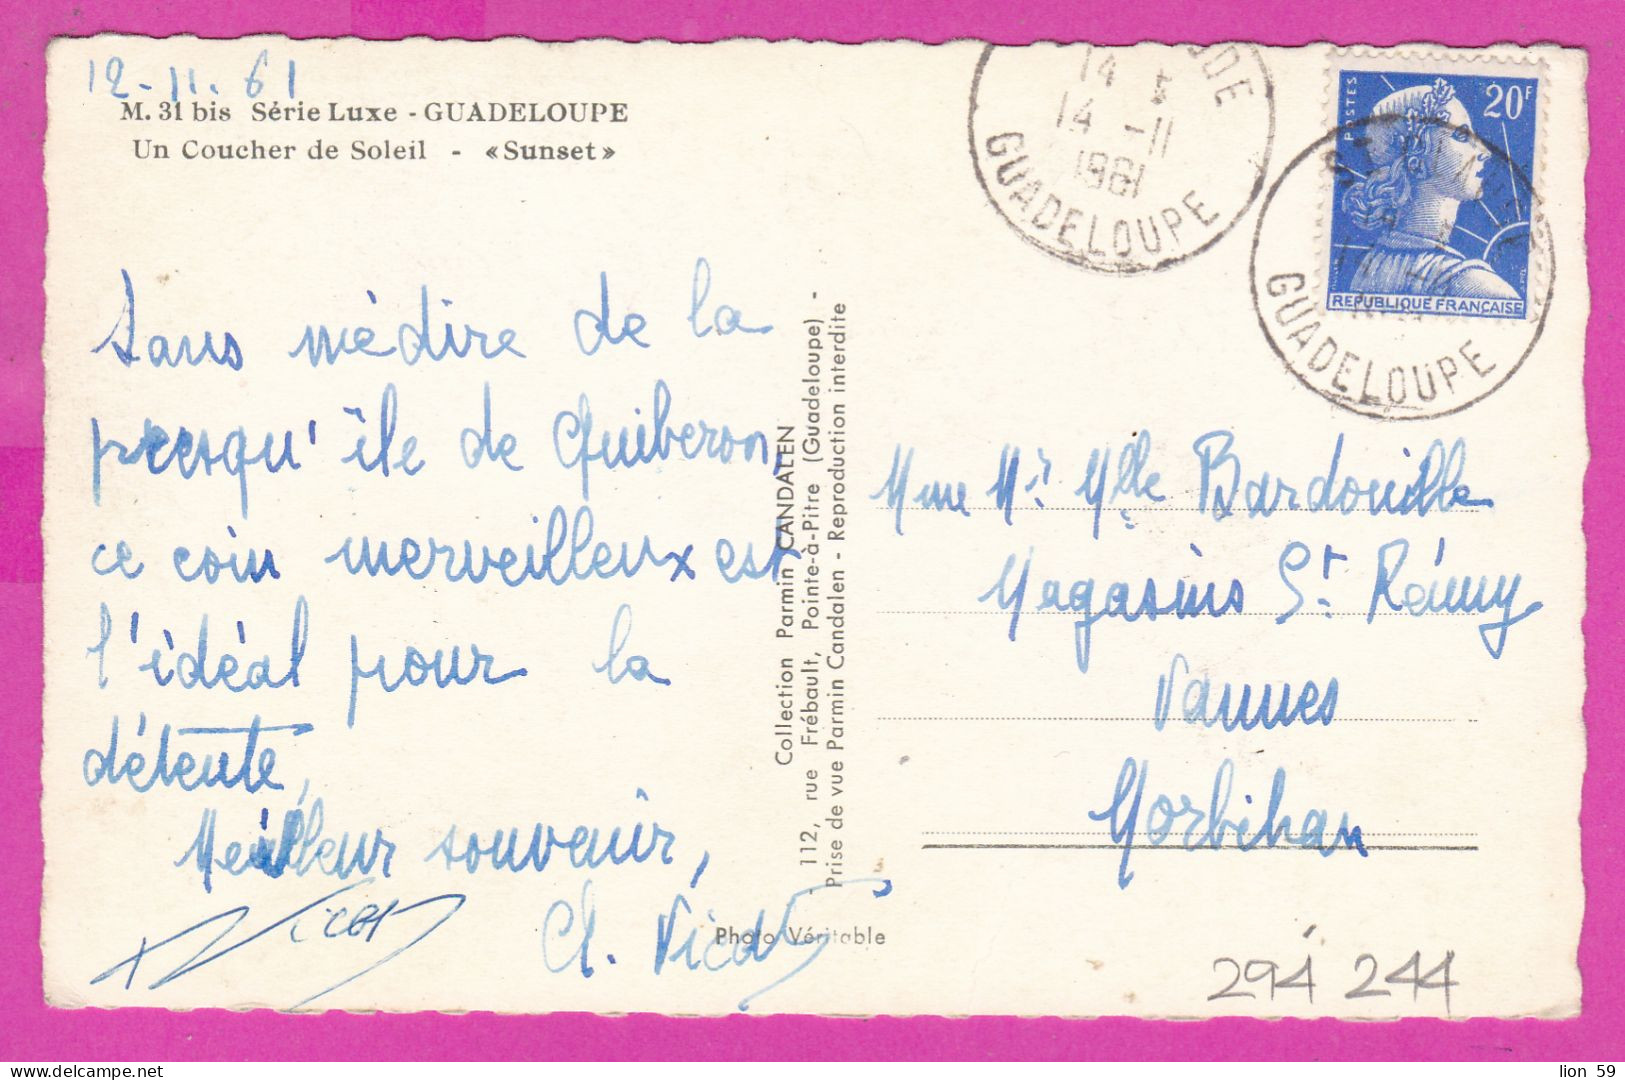 12-11.61
M. 31 bis Série Luxe - GUADELOUPE
Un Coucher de Soleil - «Sunset»
Sans médire de la
presqu'île de Quiberon,
ce coin merveilleux est
l'idéal pour la
détente,
Meilleur souvenir,
Cl. Vicat
Photo Véritable
Collection Parmin CANDALEN
- 112, rue Frébault, Pointe-à-Pitre (Guadeloupe) -
Prise de vue Parmin Candalen - Reproduction interdite
14
14 -11
1961
GUADELOUPE
POSTES
20F
REPUBLIQUE FRANÇAISE
ST CLAUDE
GUADELOUPE
Mme Mr Mlle Bardouille
Magasins St Rémy
Vannes
Morbihan
294 244
lion 59